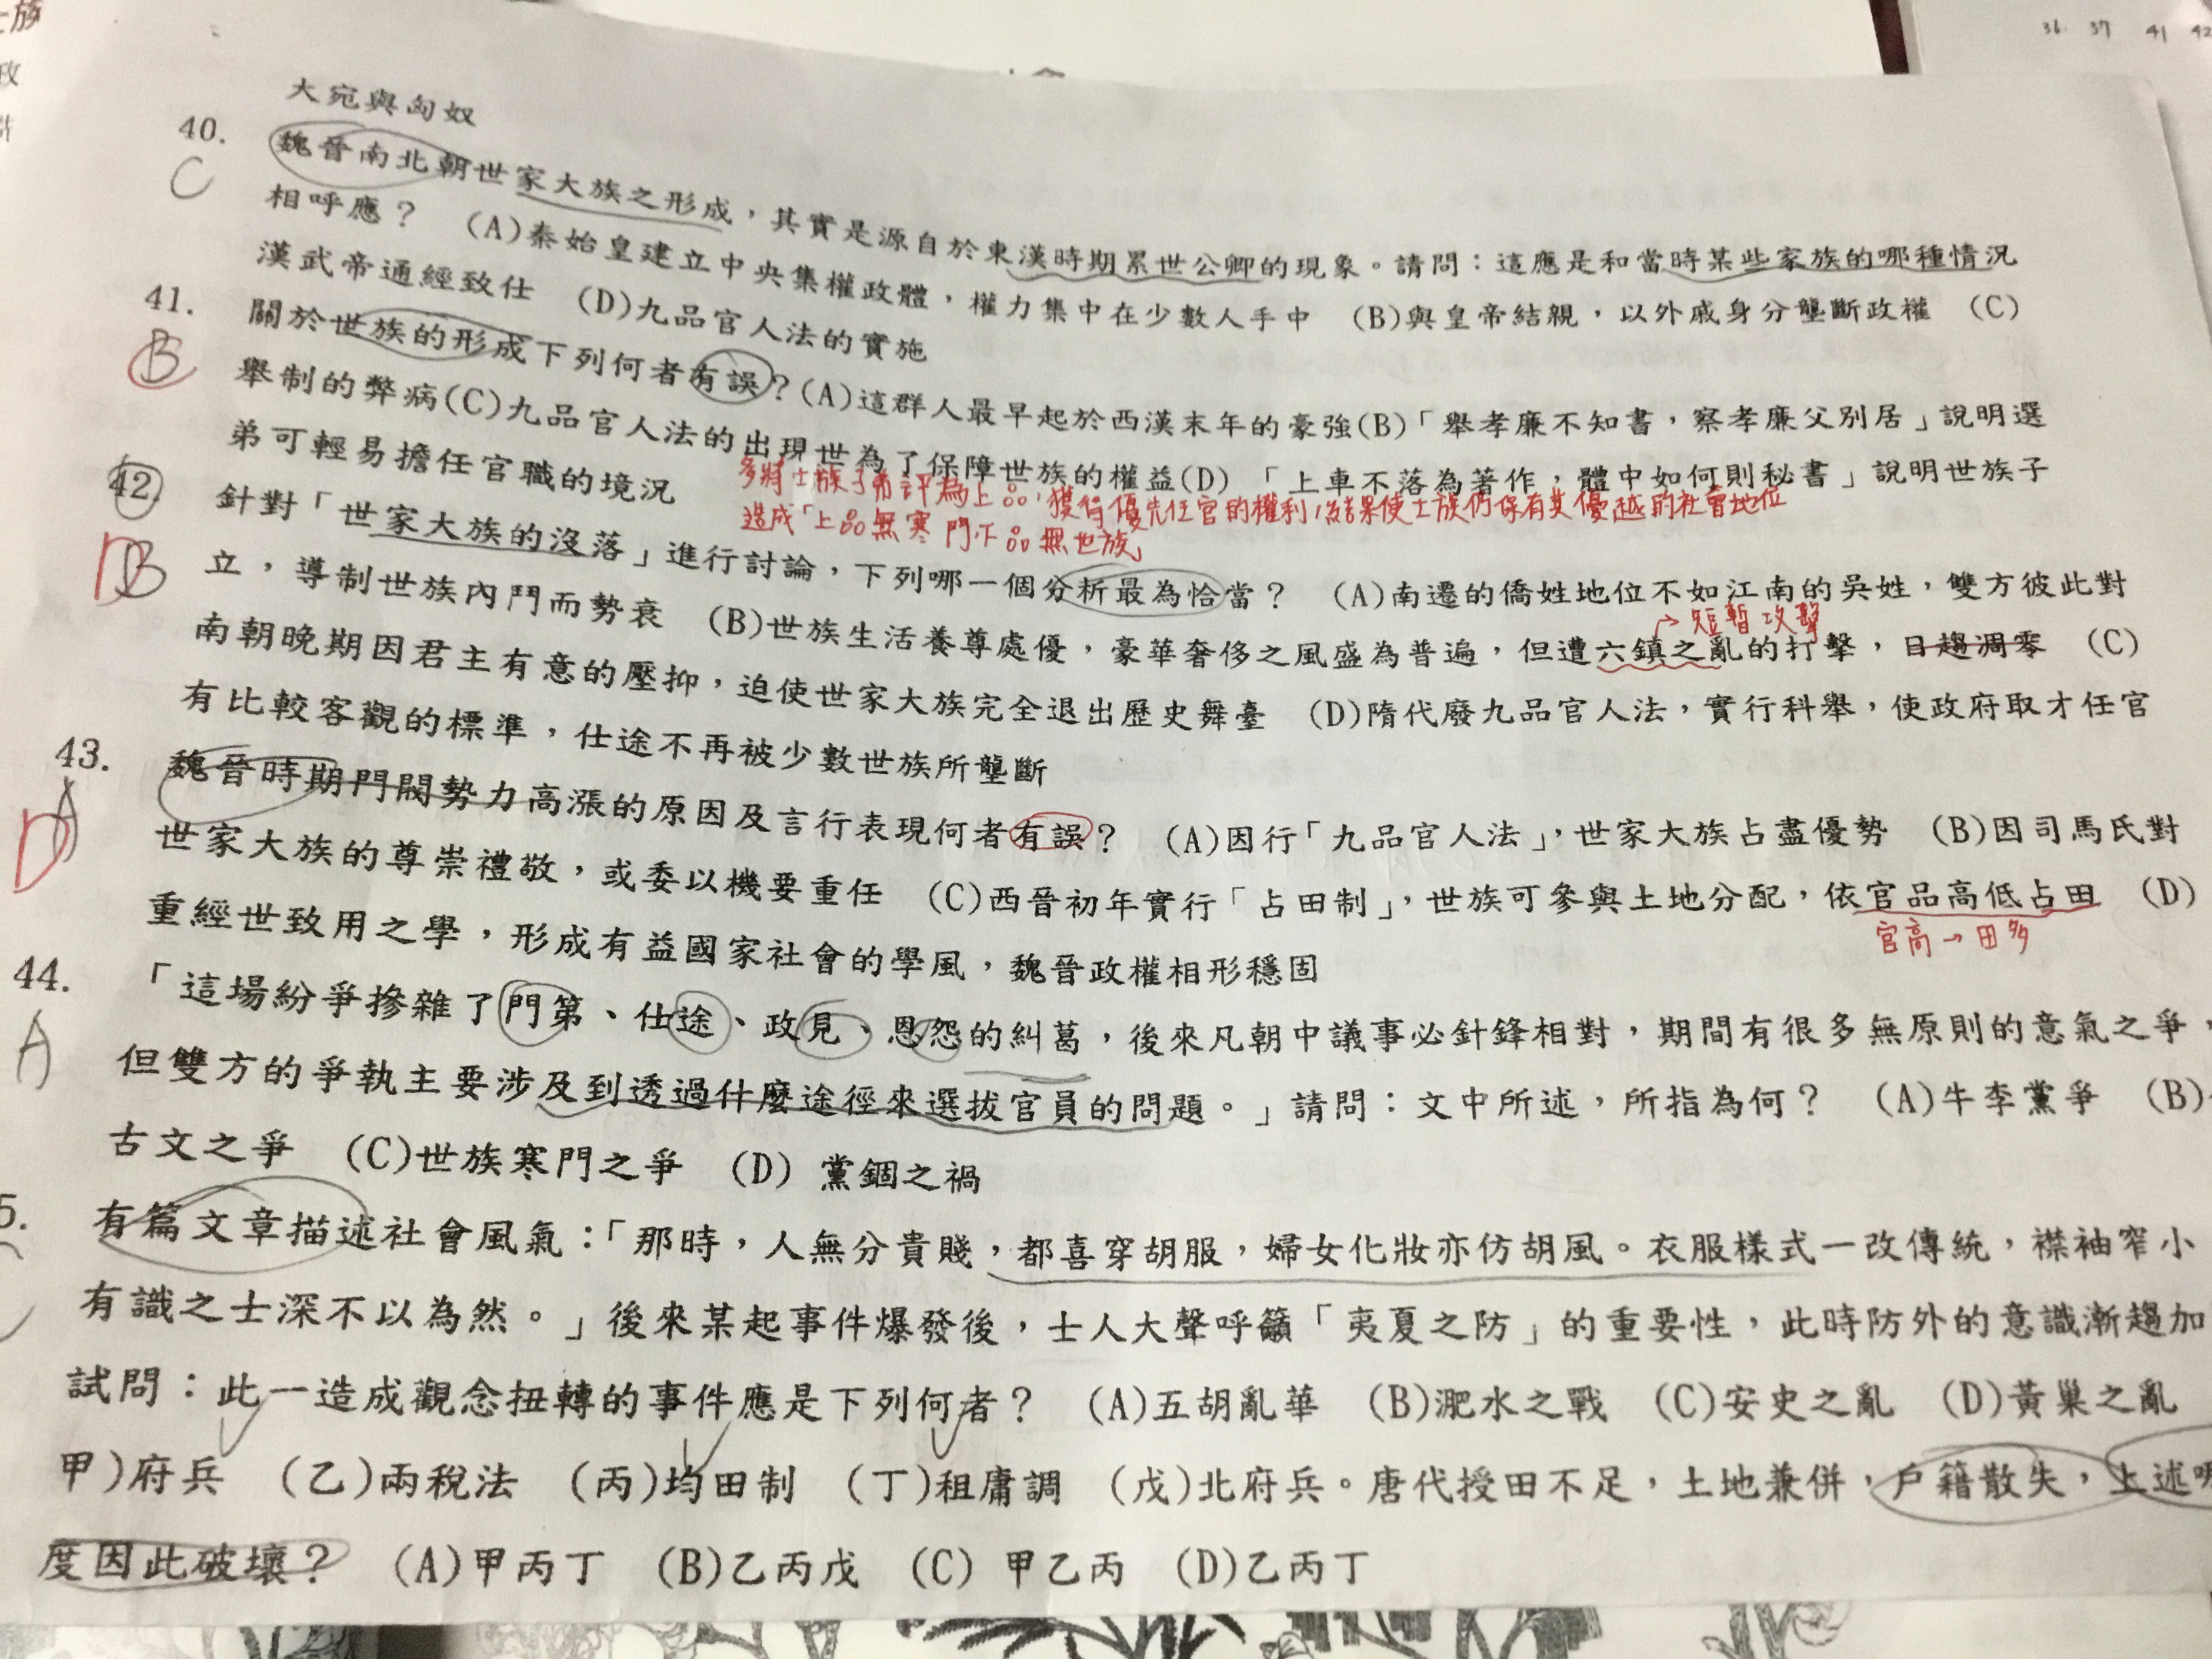 士族
政
36 37 41 42
大宛與匈奴
40. 魏晉南北朝世家大族之形成，其實是源自於東漢時期累世公卿的現象。請問：這應是和當時某些家族的哪種情況
C
相呼應？ (A)秦始皇建立中央集權政體，權力集中在少數人手中 (B)與皇帝結親，以外戚身分壟斷政權 (C)
漢武帝通經致仕 (D)九品官人法的實施
41. 關於世族的形成下列何者有誤？(A)這群人最早起於西漢末年的豪強(B)「舉孝廉不知書，察孝廉父別居」說明選
B
舉制的弊病(C)九品官人法的出現世為了保障世族的權益(D) 「上車不落為著作，體中如何則秘書」說明世族子
弟可輕易擔任官職的境況
多將士族子弟評為上品，獲得優先任官的權利，結果使士族們保有其優越的社會地位
造成「上品無寒門，下品無世族」
42. 針對「世家大族的沒落」進行討論，下列哪一個分析最為恰當？ (A)南遷的僑姓地位不如江南的吳姓，雙方彼此對
D B
立，導制世族內鬥而勢衰 (B)世族生活養尊處優，豪華奢侈之風盛為普遍，但遭六鎮之亂的打擊，日趨凋零 (C)
→短暫攻擊
南朝晚期因君主有意的壓抑，迫使世家大族完全退出歷史舞臺 (D)隋代廢九品官人法，實行科舉，使政府取才任官
有比較客觀的標準，仕途不再被少數世族所壟斷
43. 魏晉時期門閥勢力高漲的原因及言行表現何者有誤？ (A)因行「九品官人法」，世家大族占盡優勢 (B)因司馬氏對
D A
世家大族的尊崇禮敬，或委以機要重任 (C)西晉初年實行「占田制」，世族可參與土地分配，依官品高低占田 (D)
官高→田多
重經世致用之學，形成有益國家社會的學風，魏晉政權相形穩固
44. 「這場紛爭摻雜了門第、仕途、政見、恩怨的糾葛，後來凡朝中議事必針鋒相對，期間有很多無原則的意氣之爭，
A
但雙方的爭執主要涉及到透過什麼途徑來選拔官員的問題。」請問：文中所述，所指為何？ (A)牛李黨爭 (B)
古文之爭 (C)世族寒門之爭 (D) 黨錮之禍
5. 有篇文章描述社會風氣：「那時，人無分貴賤，都喜穿胡服，婦女化妝亦仿胡風。衣服樣式一改傳統，襟袖窄小
有識之士深不以為然。」後來某起事件爆發後，士人大聲呼籲「夷夏之防」的重要性，此時防外的意識漸趨加
試問：此一造成觀念扭轉的事件應是下列何者？ (A)五胡亂華 (B)淝水之戰 (C)安史之亂 (D)黃巢之亂
甲)府兵 (乙)兩稅法 (丙)均田制 (丁)租庸調 (戊)北府兵。唐代授田不足，土地兼併，戶籍散失，上述
度因此破壞？ (A)甲丙丁 (B)乙丙戊 (C) 甲乙丙 (D)乙丙丁